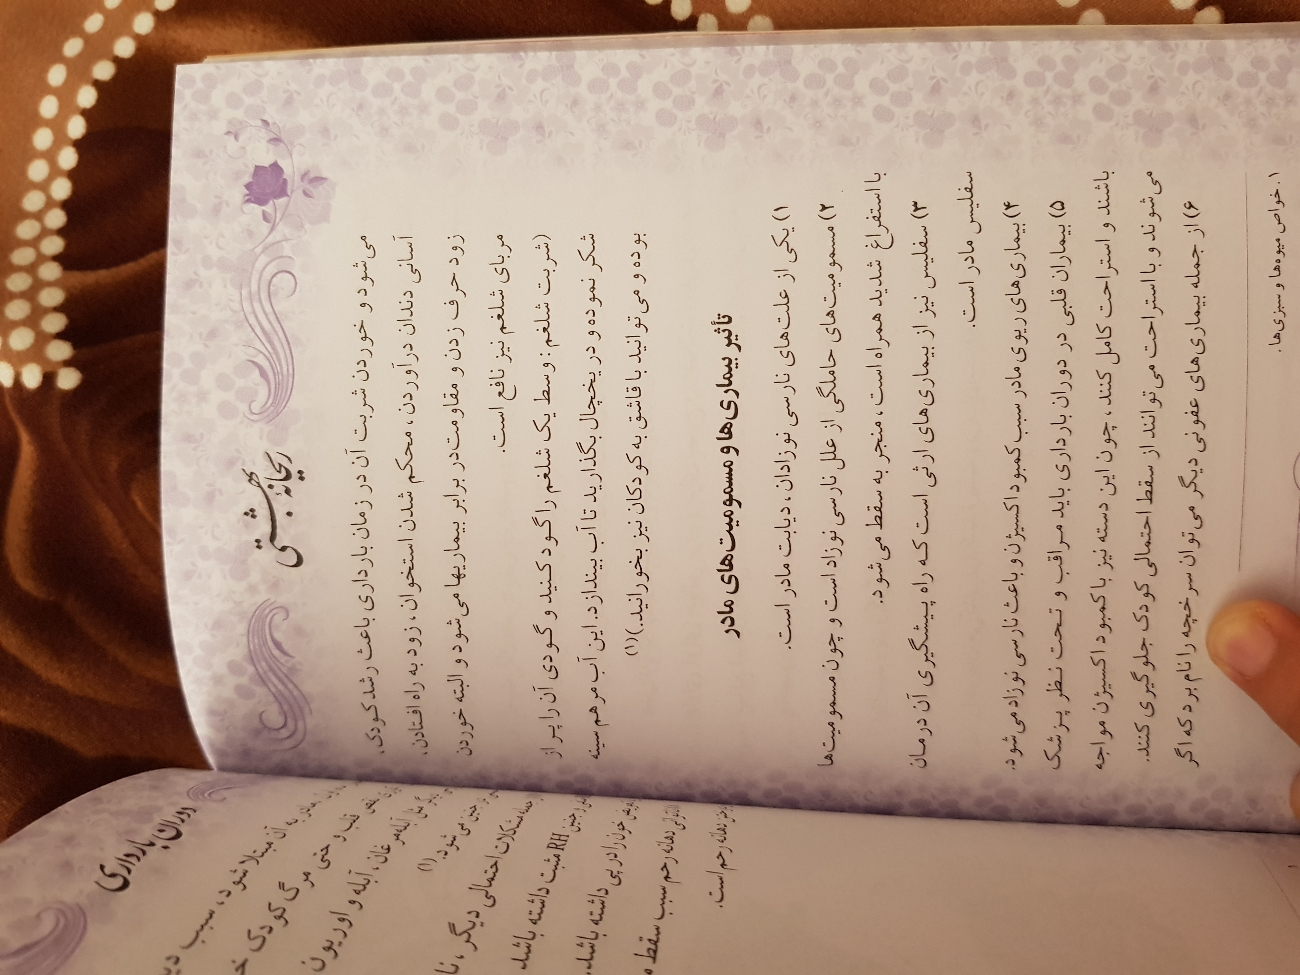 ریحانهٔ بهشتی
می‌شود و خوردن شربت آن در زمان بارداری باعث رشد کودک،
آسانی دندان درآوردن، محکم شدن استخوان، زود به راه افتادن،
زود حرف زدن و مقاومت در برابر بیماریها می‌شود و البته خوردن
مربای شلغم نیز نافع است.
(شربت شلغم: وسط یک شلغم را گود کنید و گودی آن را پر از
شکر نموده و در یخچال بگذارید تا آب بیندازد. این آب مرهم سینه
بوده و می‌توانید با قاشق به کودکان نیز بخورانید.)(۱)
تأثیر بیماری‌ها و مسمومیت‌های مادر
۱) یکی از علت‌های نارسی نوزادان، دیابت مادر است.
۲) مسمومیت‌های حاملگی از علل نارسی نوزاد است و چون مسمومیت‌ها
با استفراغ شدید همراه است، منجر به سقط می‌شود.
۳) سفلیس نیز از بیماری‌های ارثی است که راه پیشگیری آن درمان
سفلیس مادر است.
۴) بیماری‌های ریوی مادر سبب کمبود اکسیژن و باعث نارسی نوزاد می‌شود.
۵) بیماران قلبی در دوران بارداری باید مراقب و تحت نظر پزشک
باشند و استراحت کامل کنند، چون این دسته نیز با کمبود اکسیژن مواجه
می‌شوند و با استراحت می‌توانند از سقط احتمالی کودک جلوگیری کنند.
۶) از جمله بیماری‌های عفونی دیگر می‌توان سرخچه را نام برد که اگر
۱. خواص میوه‌ها و سبزی‌ها.
دوران بارداری
به آن مبتلا شود، سبب
قلب و حتی مرگ کودک
آبله مرغان، آبله و اوریون
می‌شود. (۱)
مشکلات احتمالی دیگر،
RH مثبت داشته باشد
خون را در پی داشته باشد.
دهانه رحم سبب سقط
دهانه رحم است.